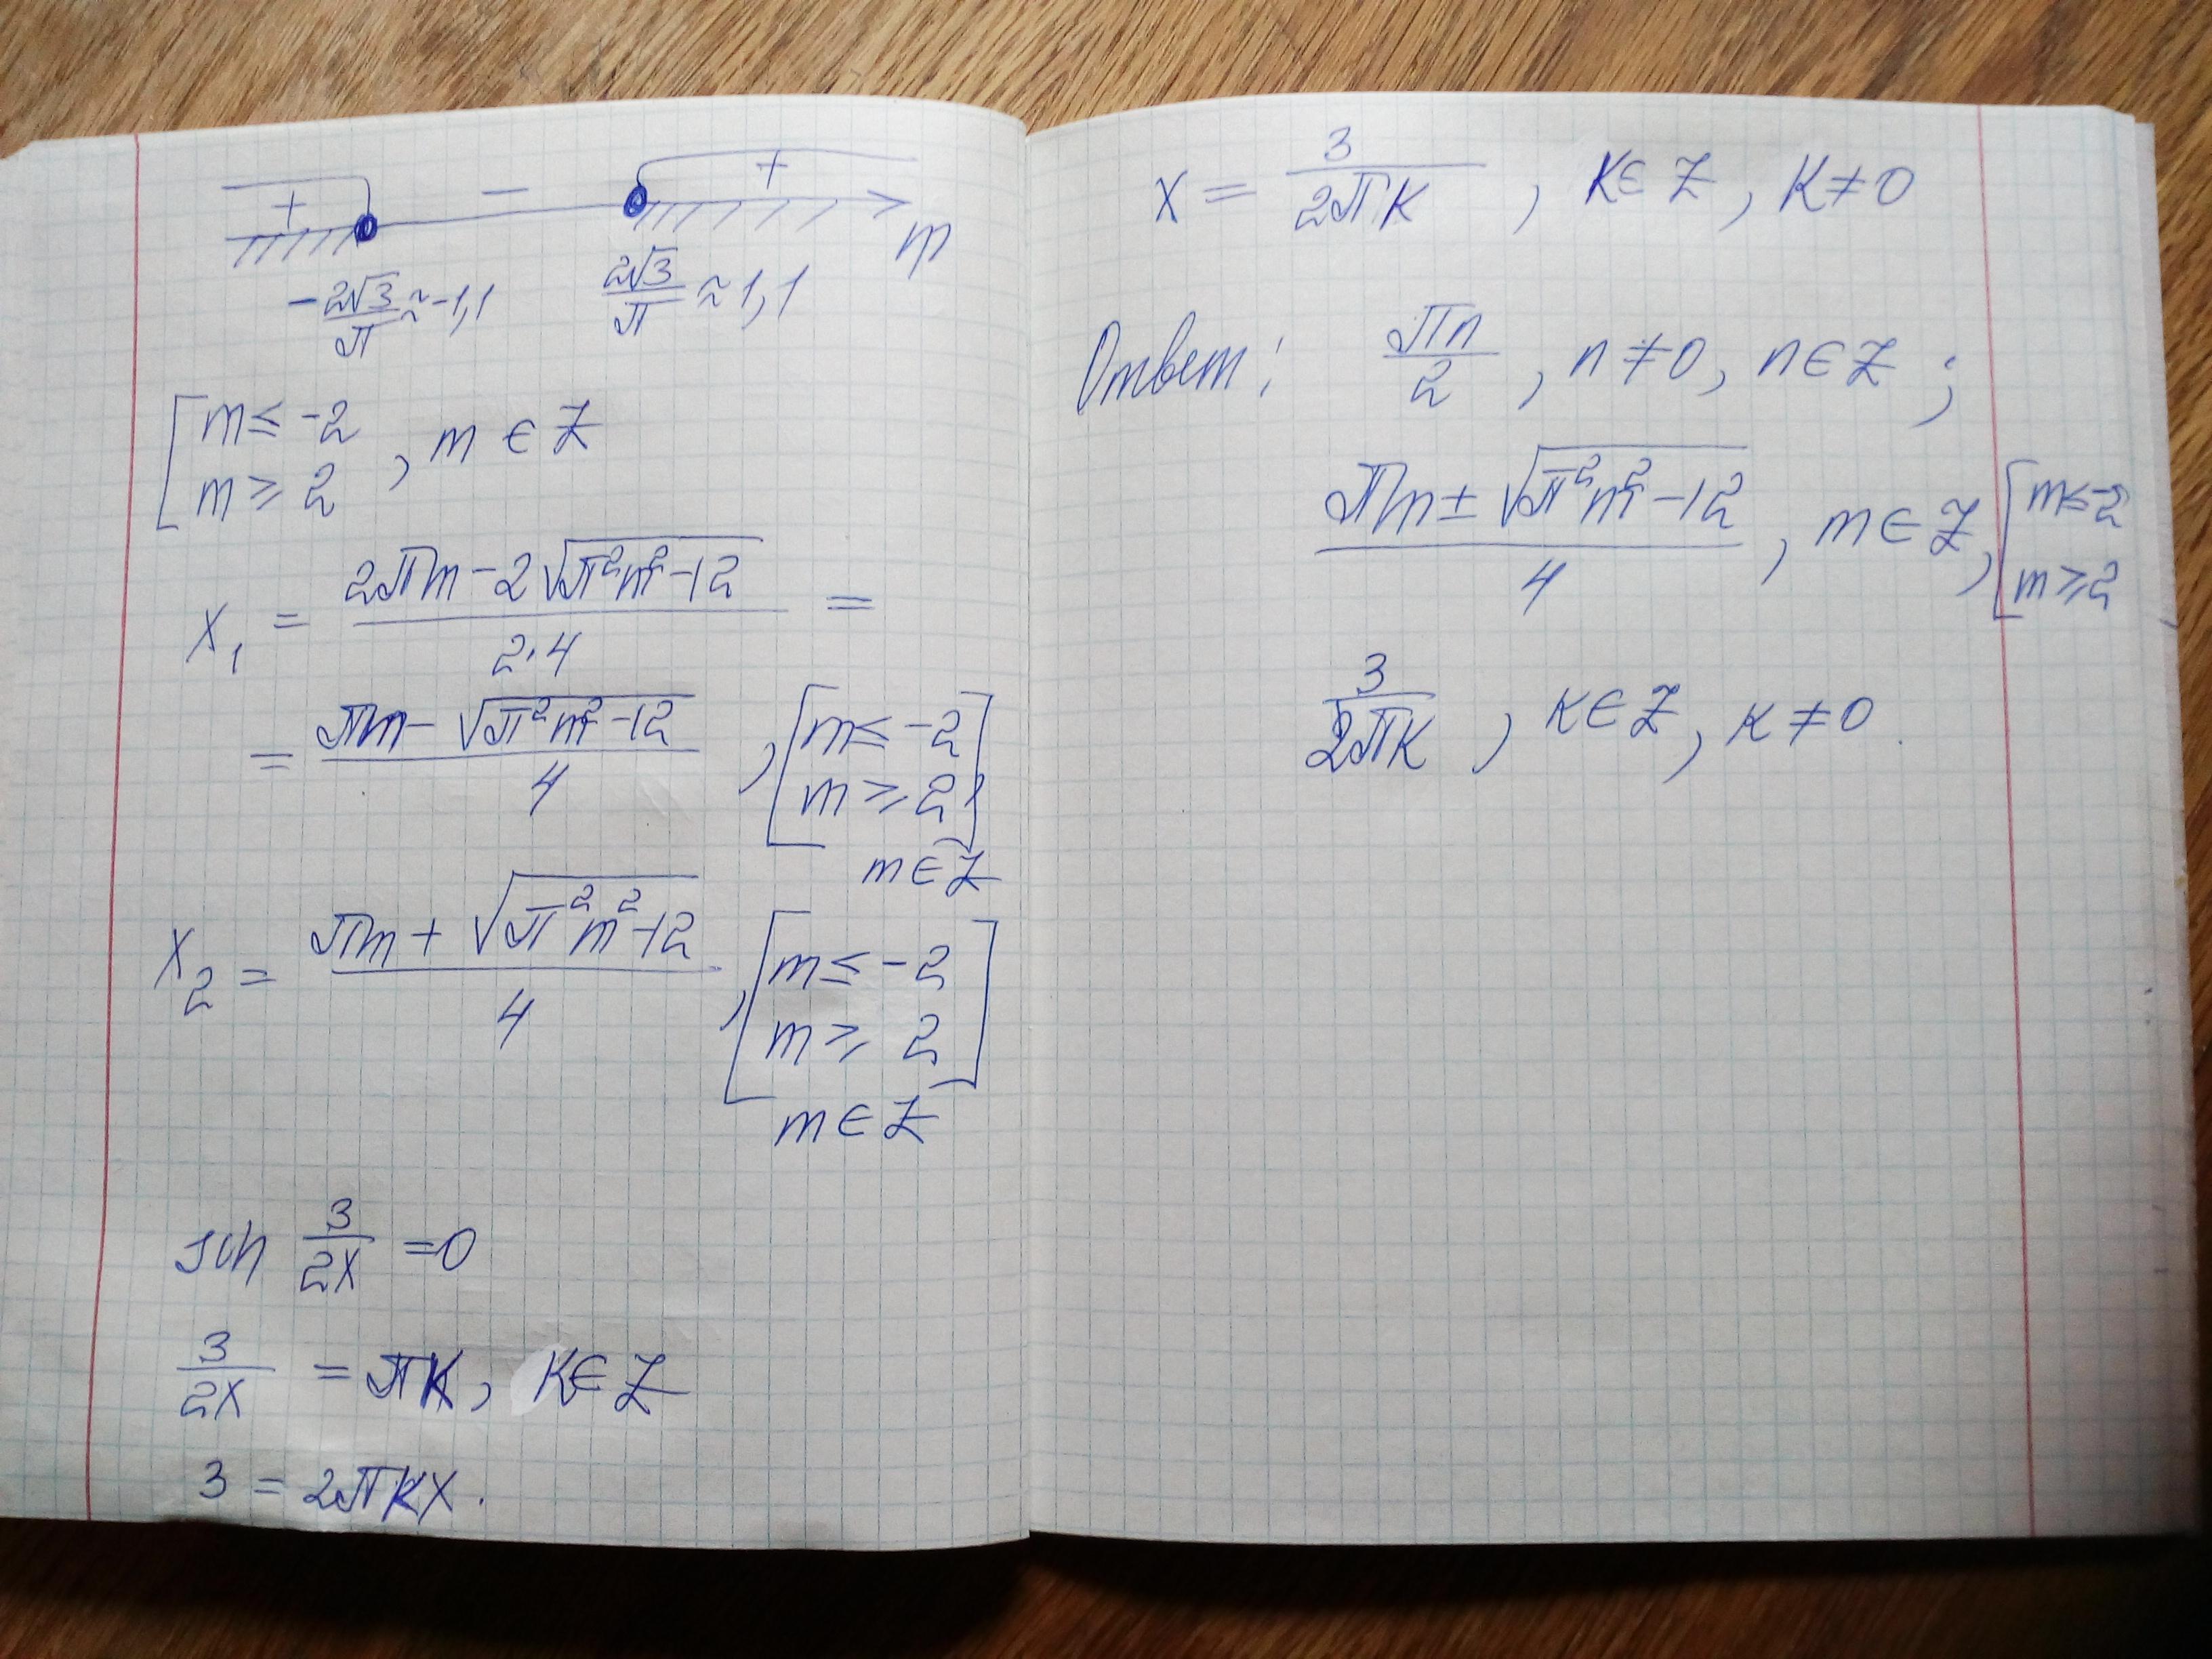 + − + m
−2√3/π ≈ −1,1 2√3/π ≈ 1,1
[m ≤ −2
m ≥ 2 , m ∈ Z
x₁ = (2πm − 2√(π²m² − 12))/(2·4) =
= (πm − √(π²m² − 12))/4 , [m ≤ −2
m ≥ 2],
m ∈ Z
x₂ = (πm + √(π²m² − 12))/4 , [m ≤ −2
m ≥ 2]
m ∈ Z
sin 3/(2x) = 0
3/(2x) = πk, k ∈ Z
3 = 2πkx.
x = 3/(2πk) , k ∈ Z, k ≠ 0
Ответ: πn/2 , n ≠ 0, n ∈ Z ;
(πm ± √(π²m² − 12))/4 , m ∈ Z, [m ≤ −2
m ≥ 2
3/(2πk) , k ∈ Z, k ≠ 0.